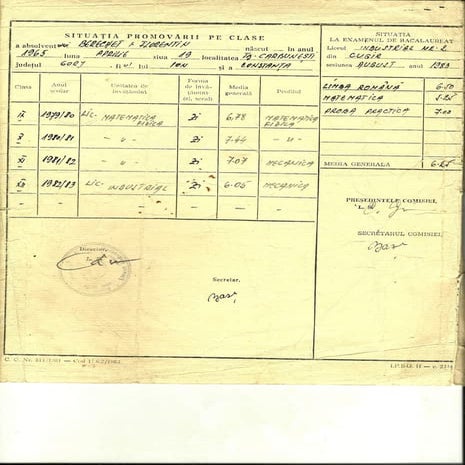 SITUAȚIA PROMOVĂRII PE CLASE
a absolventului BERECHET Z FLORENTIN născut în anul
1965 luna APRILIE ziua 19 localitatea TG-CĂRBUNEȘTI
județul GORJ fiul lui ION și a CONSTANȚA
Clasa Anul școlar Unitatea de învățământ Forma de învățământ (zi, seral) Media generală Profilul
IX 1979/80 LIC. MATEMATICĂ FIZICĂ Zi 6,78 MATEMATICĂ FIZICĂ
X 1980/81 — „ — Zi 7.44 — „ —
XI 1981/82 — „ — Zi 7.07 MECANICĂ
XII 1982/83 LIC. INDUSTRIAL Zi 6.05 MECANICĂ
Director,
Secretar,
SITUAȚIA
LA EXAMENUL DE BACALAUREAT
Liceul INDUSTRIAL NR. 2
din CUGIR
sesiunea AUGUST anul 1983
LIMBA ROMÂNĂ 6.50
MATEMATICA 5.25
PROBA PRACTICĂ 7.00
MEDIA GENERALĂ 6.25
PREȘEDINTELE COMISIEI,
SECRETARUL COMISIEI,